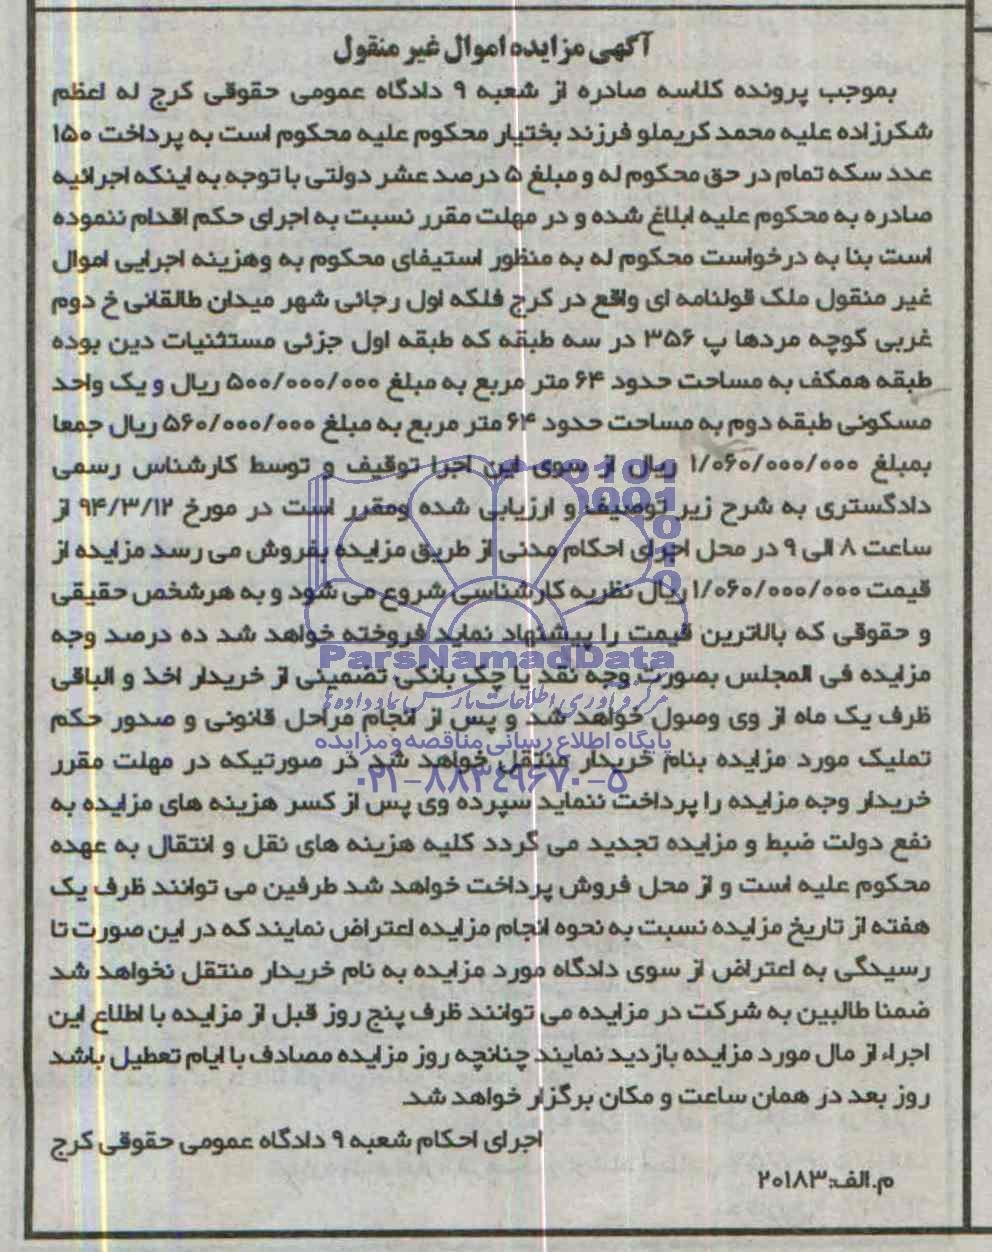 آگهی مزایده اموال غیر منقول
بموجب پرونده کلاسه صادره از شعبه ۹ دادگاه عمومی حقوقی کرج له اعظم
شکرزاده علیه محمد کریملو فرزند بختیار محکوم علیه محکوم است به پرداخت ۱۵۰
عدد سکه تمام در حق محکوم له و مبلغ ۵ درصد عشر دولتی با توجه به اینکه اجرائیه
صادره به محکوم علیه ابلاغ شده و در مهلت مقرر نسبت به اجرای حکم اقدام ننموده
است بنا به درخواست محکوم له به منظور استیفای محکوم به وهزینه اجرایی اموال
غیر منقول ملک قولنامه ای واقع در کرج فلکه اول رجائی شهر میدان طالقانی خ دوم
غربی کوچه مردها پ ۳۵۶ در سه طبقه که طبقه اول جزئی مستثنیات دین بوده
طبقه همکف به مساحت حدود ۶۴ متر مربع به مبلغ ۵۰۰/۰۰۰/۰۰۰ ریال و یک واحد
مسکونی طبقه دوم به مساحت حدود ۶۴ متر مربع به مبلغ ۵۶۰/۰۰۰/۰۰۰ ریال جمعا
بمبلغ ۱/۰۶۰/۰۰۰/۰۰۰ ریال از سوی این اجرا توقیف و توسط کارشناس رسمی
دادگستری به شرح زیر توصیف و ارزیابی شده ومقرر است در مورخ ۹۴/۳/۱۲ از
ساعت ۸ الی ۹ در محل اجرای احکام مدنی از طریق مزایده بفروش می رسد مزایده از
قیمت ۱/۰۶۰/۰۰۰/۰۰۰ ریال نظریه کارشناسی شروع می شود و به هرشخص حقیقی
و حقوقی که بالاترین قیمت را پیشنهاد نماید فروخته خواهد شد ده درصد وجه
ParsNamadData
مزایده فی المجلس بصورت وجه نقد یا چک بانکی تضمینی از خریدار اخذ و الباقی
مرکز فرآوری اطلاعات پارس نماد داده ها
ظرف یک ماه از وی وصول خواهد شد و پس از انجام مراحل قانونی و صدور حکم
پایگاه اطلاع رسانی مناقصه و مزایده
تملیک مورد مزایده بنام خریدار منتقل خواهد شد در صورتیکه در مهلت مقرر
۰۲۱-۸۸۳۴۹۶۷۰-۵
خریدار وجه مزایده را پرداخت ننماید سپرده وی پس از کسر هزینه های مزایده به
نفع دولت ضبط و مزایده تجدید می گردد کلیه هزینه های نقل و انتقال به عهده
محکوم علیه است و از محل فروش پرداخت خواهد شد طرفین می توانند ظرف یک
هفته از تاریخ مزایده نسبت به نحوه انجام مزایده اعتراض نمایند که در این صورت تا
رسیدگی به اعتراض از سوی دادگاه مورد مزایده به نام خریدار منتقل نخواهد شد
ضمنا طالبین به شرکت در مزایده می توانند ظرف پنج روز قبل از مزایده با اطلاع این
اجراء از مال مورد مزایده بازدید نمایند چنانچه روز مزایده مصادف با ایام تعطیل باشد
روز بعد در همان ساعت و مکان برگزار خواهد شد.
اجرای احکام شعبه ۹ دادگاه عمومی حقوقی کرج
م.الف:۲۰۱۸۳